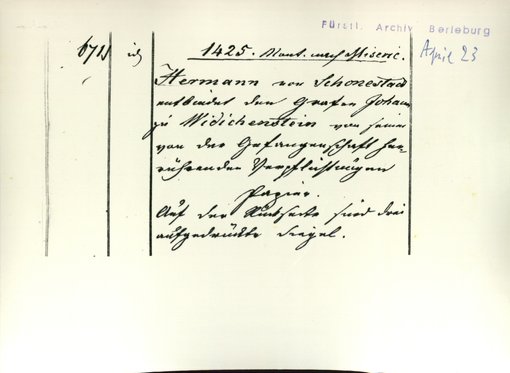 Fürstl. Archiv Berleburg
April 23
1425. Mont. nach Miseric.
Hermann von Schonestad
entbindet den Grafen Johann
zu Widichenstein von seiner
von der Gefangenschaft her-
rührenden Verpflichtungen
Papier.
Auf der Rückseite sind drei
aufgedrückte Siegel.